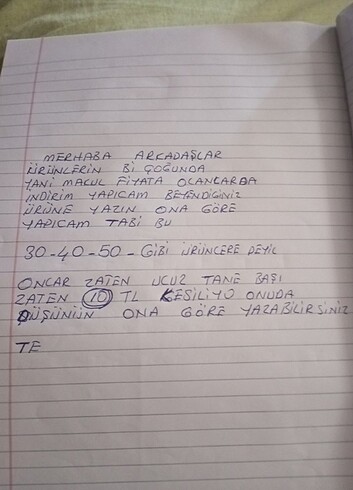 MERHABA ARKADAŞLAR
ÜRÜNLERİN Bİ ÇOĞUNDA
YANİ MACUL FİYATA OLANLARDA
İNDİRİM YAPICAM BEYENDİGİNİZ
ÜRÜNE YAZIN ONA GÖRE
YAPICAM TABİ BU
30-40-50-GİBİ ÜRÜNLERE DEYİL
ONLAR ZATEN UCUZ TANE BAŞI
ZATEN 10 TL KESİLİYO ONUDA
DÜŞÜNÜN ONA GÖRE YAZABİLİRSİNİZ
TE